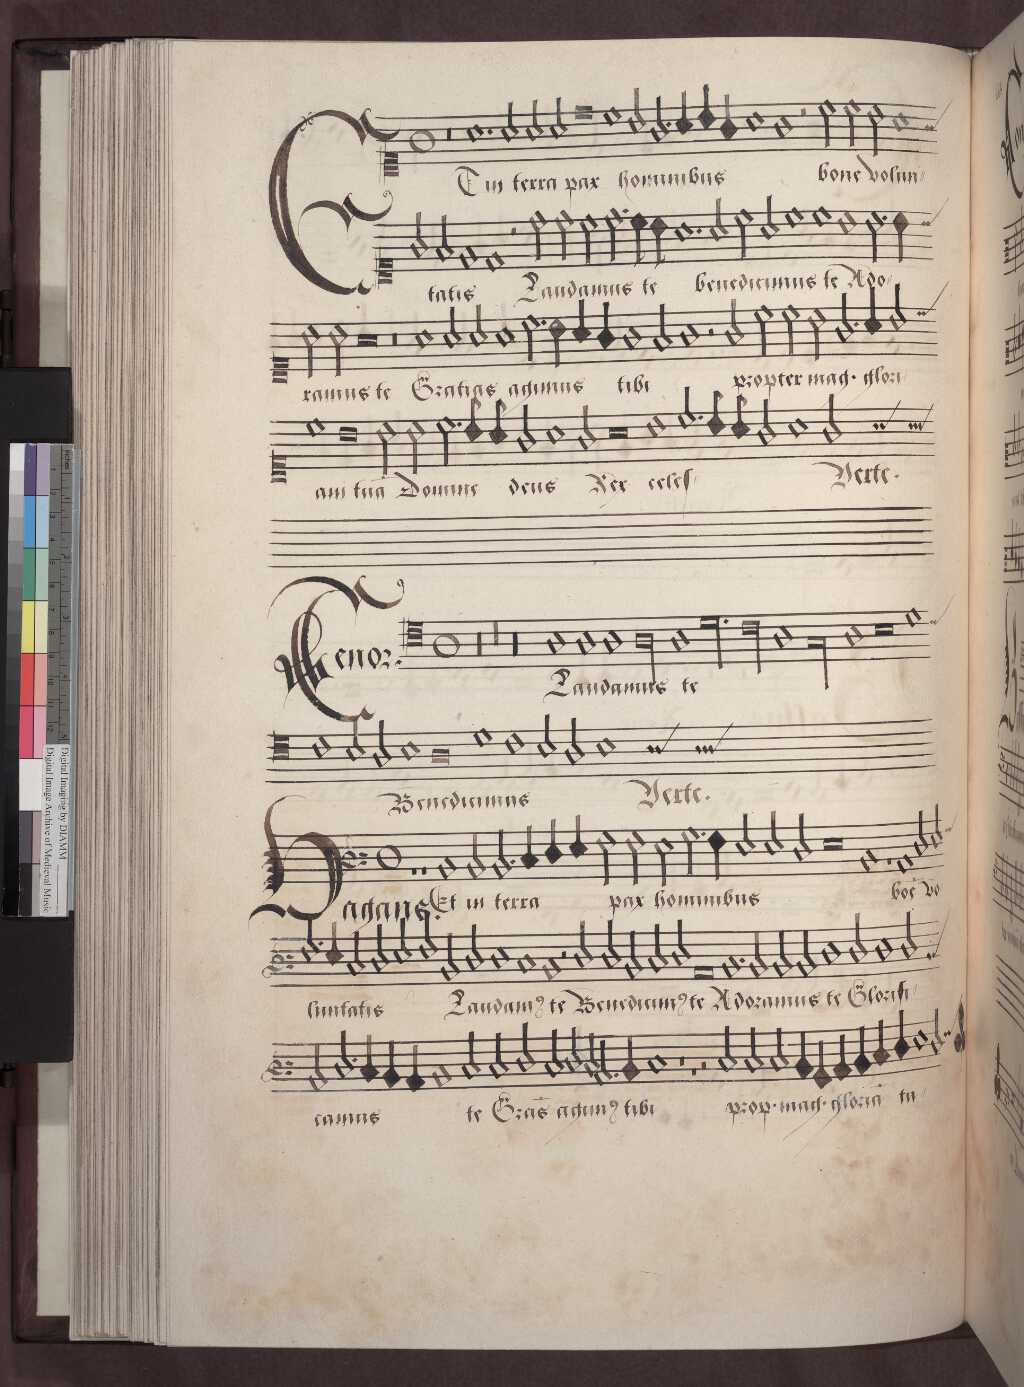 Et in terra pax hominibus bone volun
tatis Laudamus te benedicimus te Ado
ramus te Gratias agimus tibi propter mag. glori
am tuā Domine deus Rex celes Verte.
Tenor.
Laudamus te
Benedicimus Verte.
Vagans. Et in terra pax hominibus boē vo
luntatis Laudamꝰ te Benedicimꝰ te Adoramus te Glorifi
camus te Grās agimꝰ tibi prop. mag. gloriā tu
Digital Imaging by DIAMM
Digital Image Archive of Medieval Music